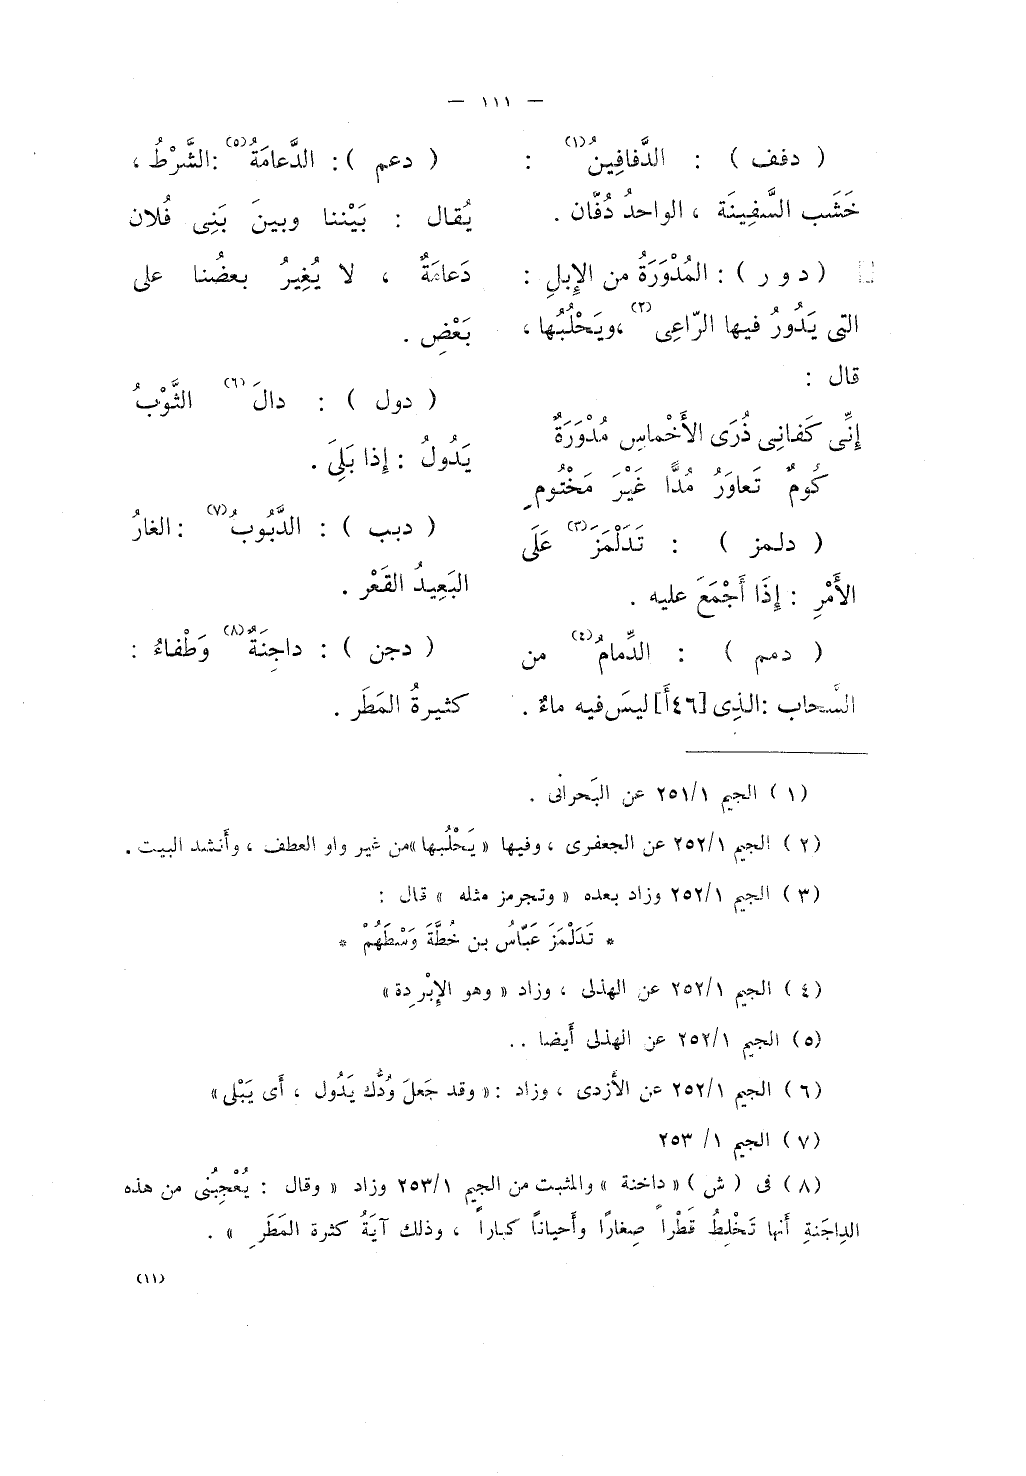 — ١١١ —
( دفف ) : الدَّفافِينُ(١) :
خَشَب السَّفِينَة ، الواحدُ دُفَّان .
( د و ر ) : المُدْوَرَةُ من الإِبلِ :
التى يَدُورُ فيها الرّاعِى(٢) ،ويَحْلُبُها ،
قال :
إِنِّى كَفانِى ذُرَى الأَخْماسِ مُدْوَرَةٌ
كُومٌ تَعاوَرُ مُدًّا غَيْرَ مَخْتُومِ
( دلمز ) : تَدَلْمَزَ(٣) عَلَى
الأَمْرِ : إِذَا أَجْمَعَ عليه .
( دمم ) : الدِّمامُ(٤) من
السَّحاب :الذِى [٤٦أ] ليسَ فيه ماءٌ .
( دعم ) : الدَّعامَةُ(٥) :الشَّرْطُ ،
يُقال : بَيْننا وبينَ بَنِى فُلان
دَعامَةٌ ، لا يُغِيرُ بعضُنا على
بَعْضٍ .
( دول ) : دالَ(٦) الثَّوْبُ
يَدُولُ : إِذا بَلِىَ .
( دبب ) : الدَّبُوبُ(٧) :الغارُ
البَعِيدُ القَعْر .
( دجن ) : داجِنَةٌ(٨) وَطْفاءُ :
كثيرةُ المَطَر .
(١) الجيم ٢٥١/١ عن البَحرانى .
(٢) الجيم ٢٥٢/١ عن الجعفرى ، وفيها « يَحْلُبها »من غير واو العطف ، وأنشد البيت .
(٣) الجيم ٢٥٢/١ وزاد بعده « وتجرمز مثله » قال :
* تَدَلْمَزَ عَبّاسُ بن خُطَّةَ وَسْطَهُمْ *
(٤) الجيم ٢٥٢/١ عن الهذلى ، وزاد « وهو الإِبْرِدة»
(٥) الجيم ٢٥٢/١ عن الهذلى أيضا . .
(٦) الجيم ٢٥٢/١ عن الأَزدى ، وزاد :« وقد جَعلَ وُدُّك يَدُول ، أى يَبْلى»
(٧) الجيم ١/ ٢٥٣
(٨) فى ( ش ) « داخنة » والمثبت من الجيم ٢٥٣/١ وزاد « وقال : يُعْجِبُنى من هذه
الدِاجَنةِ أنها تَخْلِطُ قَطْراً صِغارًا وأحيانًا كباراً ، وذلك آيَةُ كثرة المَطَرِ » .
(١١)